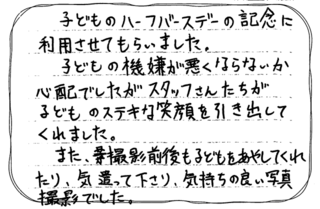 子どものハーフバースデーの記念に
利用させてもらいました。
子どもの機嫌が悪くならないか
心配でしたがスタッフさんたちが
子どものステキな笑顔を引き出して
くれました。
また、撮影前後も子どもをあやしてくれ
たり、気遣って下さり、気持ちの良い写真
撮影でした。